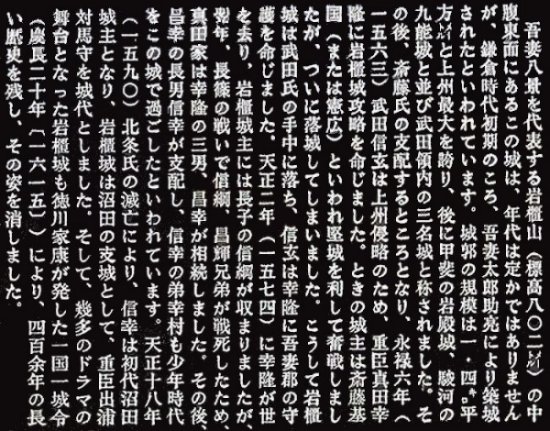 吾妻八景を代表する岩櫃山（標高八〇二㍍）の中
腹東面にあるこの城は、年代は定かではありません
が、鎌倉時代初期のころ、吾妻太郎助亮により築城
されたといわれています。城郭の規模は一・四㌔平
方㍍と上州最大を誇り、後に甲斐の岩殿城、駿河の
九能城と並び武田領内の三名城と称されました。そ
の後、斎藤氏の支配するところとなり、永禄六年（
一五六三）武田信玄は上州侵略のため、重臣真田幸
隆に岩櫃城攻略を命じました。ときの城主は斎藤基
国（または憲広）といわれ堅城を利して奮戦しまし
たが、ついに落城してしまいました。こうして岩櫃
城は武田氏の手中に落ち、信玄は幸隆に吾妻郡の守
護を命じました。天正二年（一五七四）に幸隆が世
を去り、岩櫃城主には長子の信綱が収まりましたが、
翌年、長篠の戦いで信綱、昌輝兄弟が戦死したため、
真田家は幸隆の三男、昌幸が相続しました。その後、
昌幸の長男信幸が支配し、信幸の弟幸村も少年時代
をこの城で過ごしたといわれています。天正十八年
（一五九〇）北条氏の滅亡により、信幸は初代沼田
城主となり、岩櫃城は沼田の支城として、重臣出浦
対馬守を城代としました。そして、幾多のドラマの
舞台となった岩櫃城も徳川家康が発した一国一城令
（慶長二十年〔一六一五〕）により、四百余年の長
い歴史を残し、その姿を消しました。